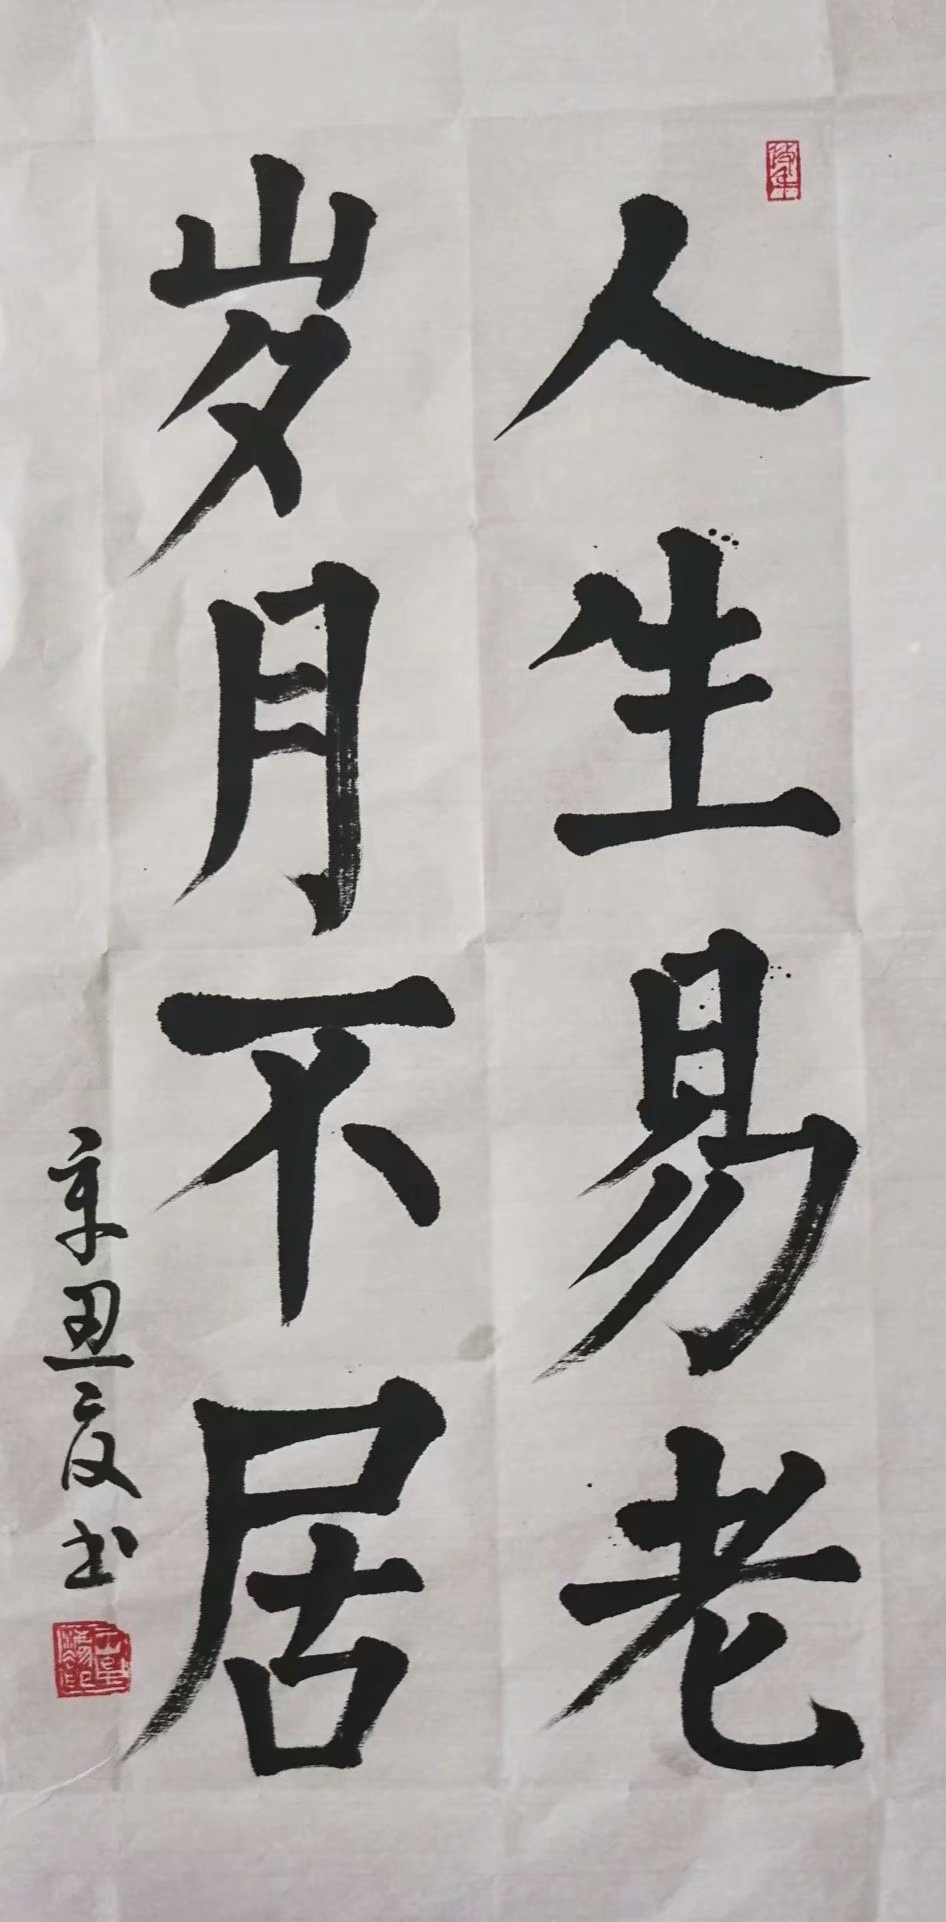 人生易老
岁月不居
辛丑二文书